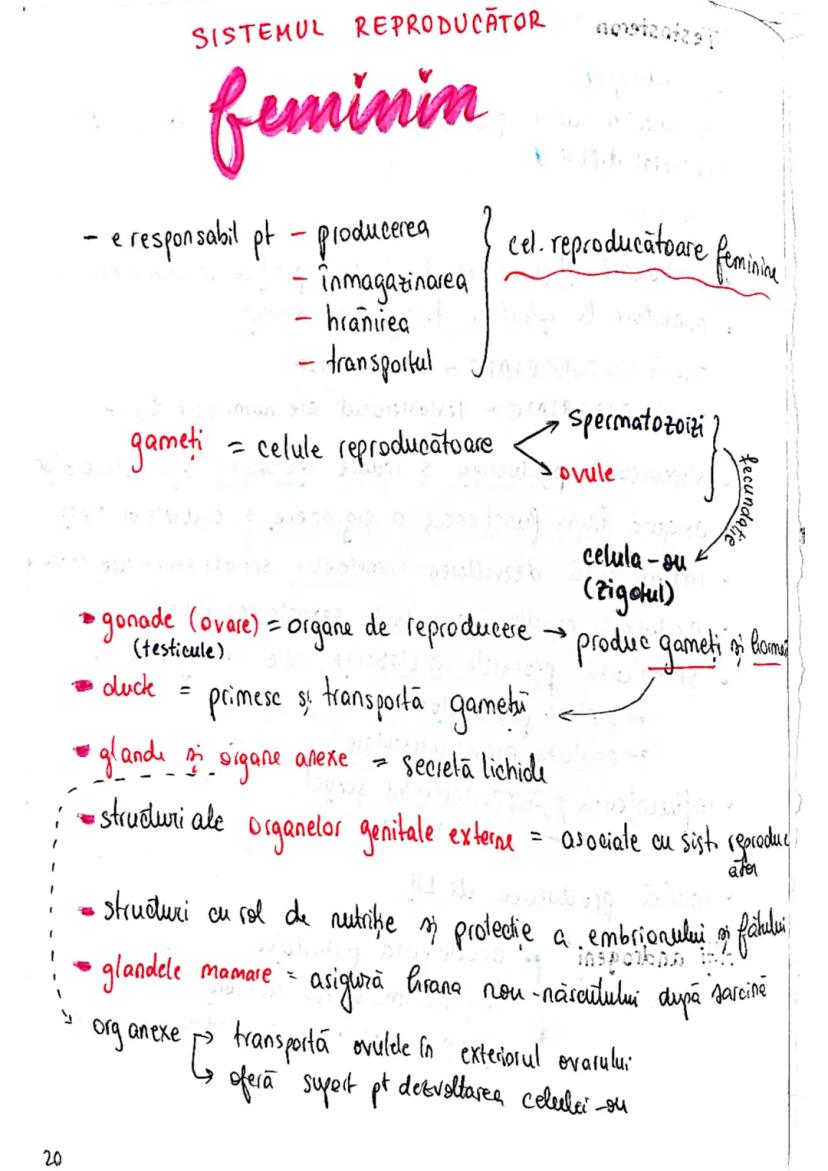 SISTEMUL REPRODUCĂTOR
feminin
- e responsabil pt - producerea
- înmagazinarea
- hrănirea
- transportul
cel. reproducătoare feminine
gameți = celule reproducătoare
spermatozoizi
ovule
fecundație
celula-ou
(zigotul)
gonade (ovare) = organe de reproducere → produc gameți și
(testicule)
ducte = primesc și transportă gameții
glande și organe anexe = secretă lichide
structuri ale organelor genitale externe = asociate cu sist. reproduc
ător
structuri cu rol de nutriție și protecție a embrionului și fătului
glandele mamare = asigură hrana nou-născutului după sarcină
org anexe → transportă ovulele în exteriorul ovarului
→ oferă suport pt dezvoltarea celulei-ou
20